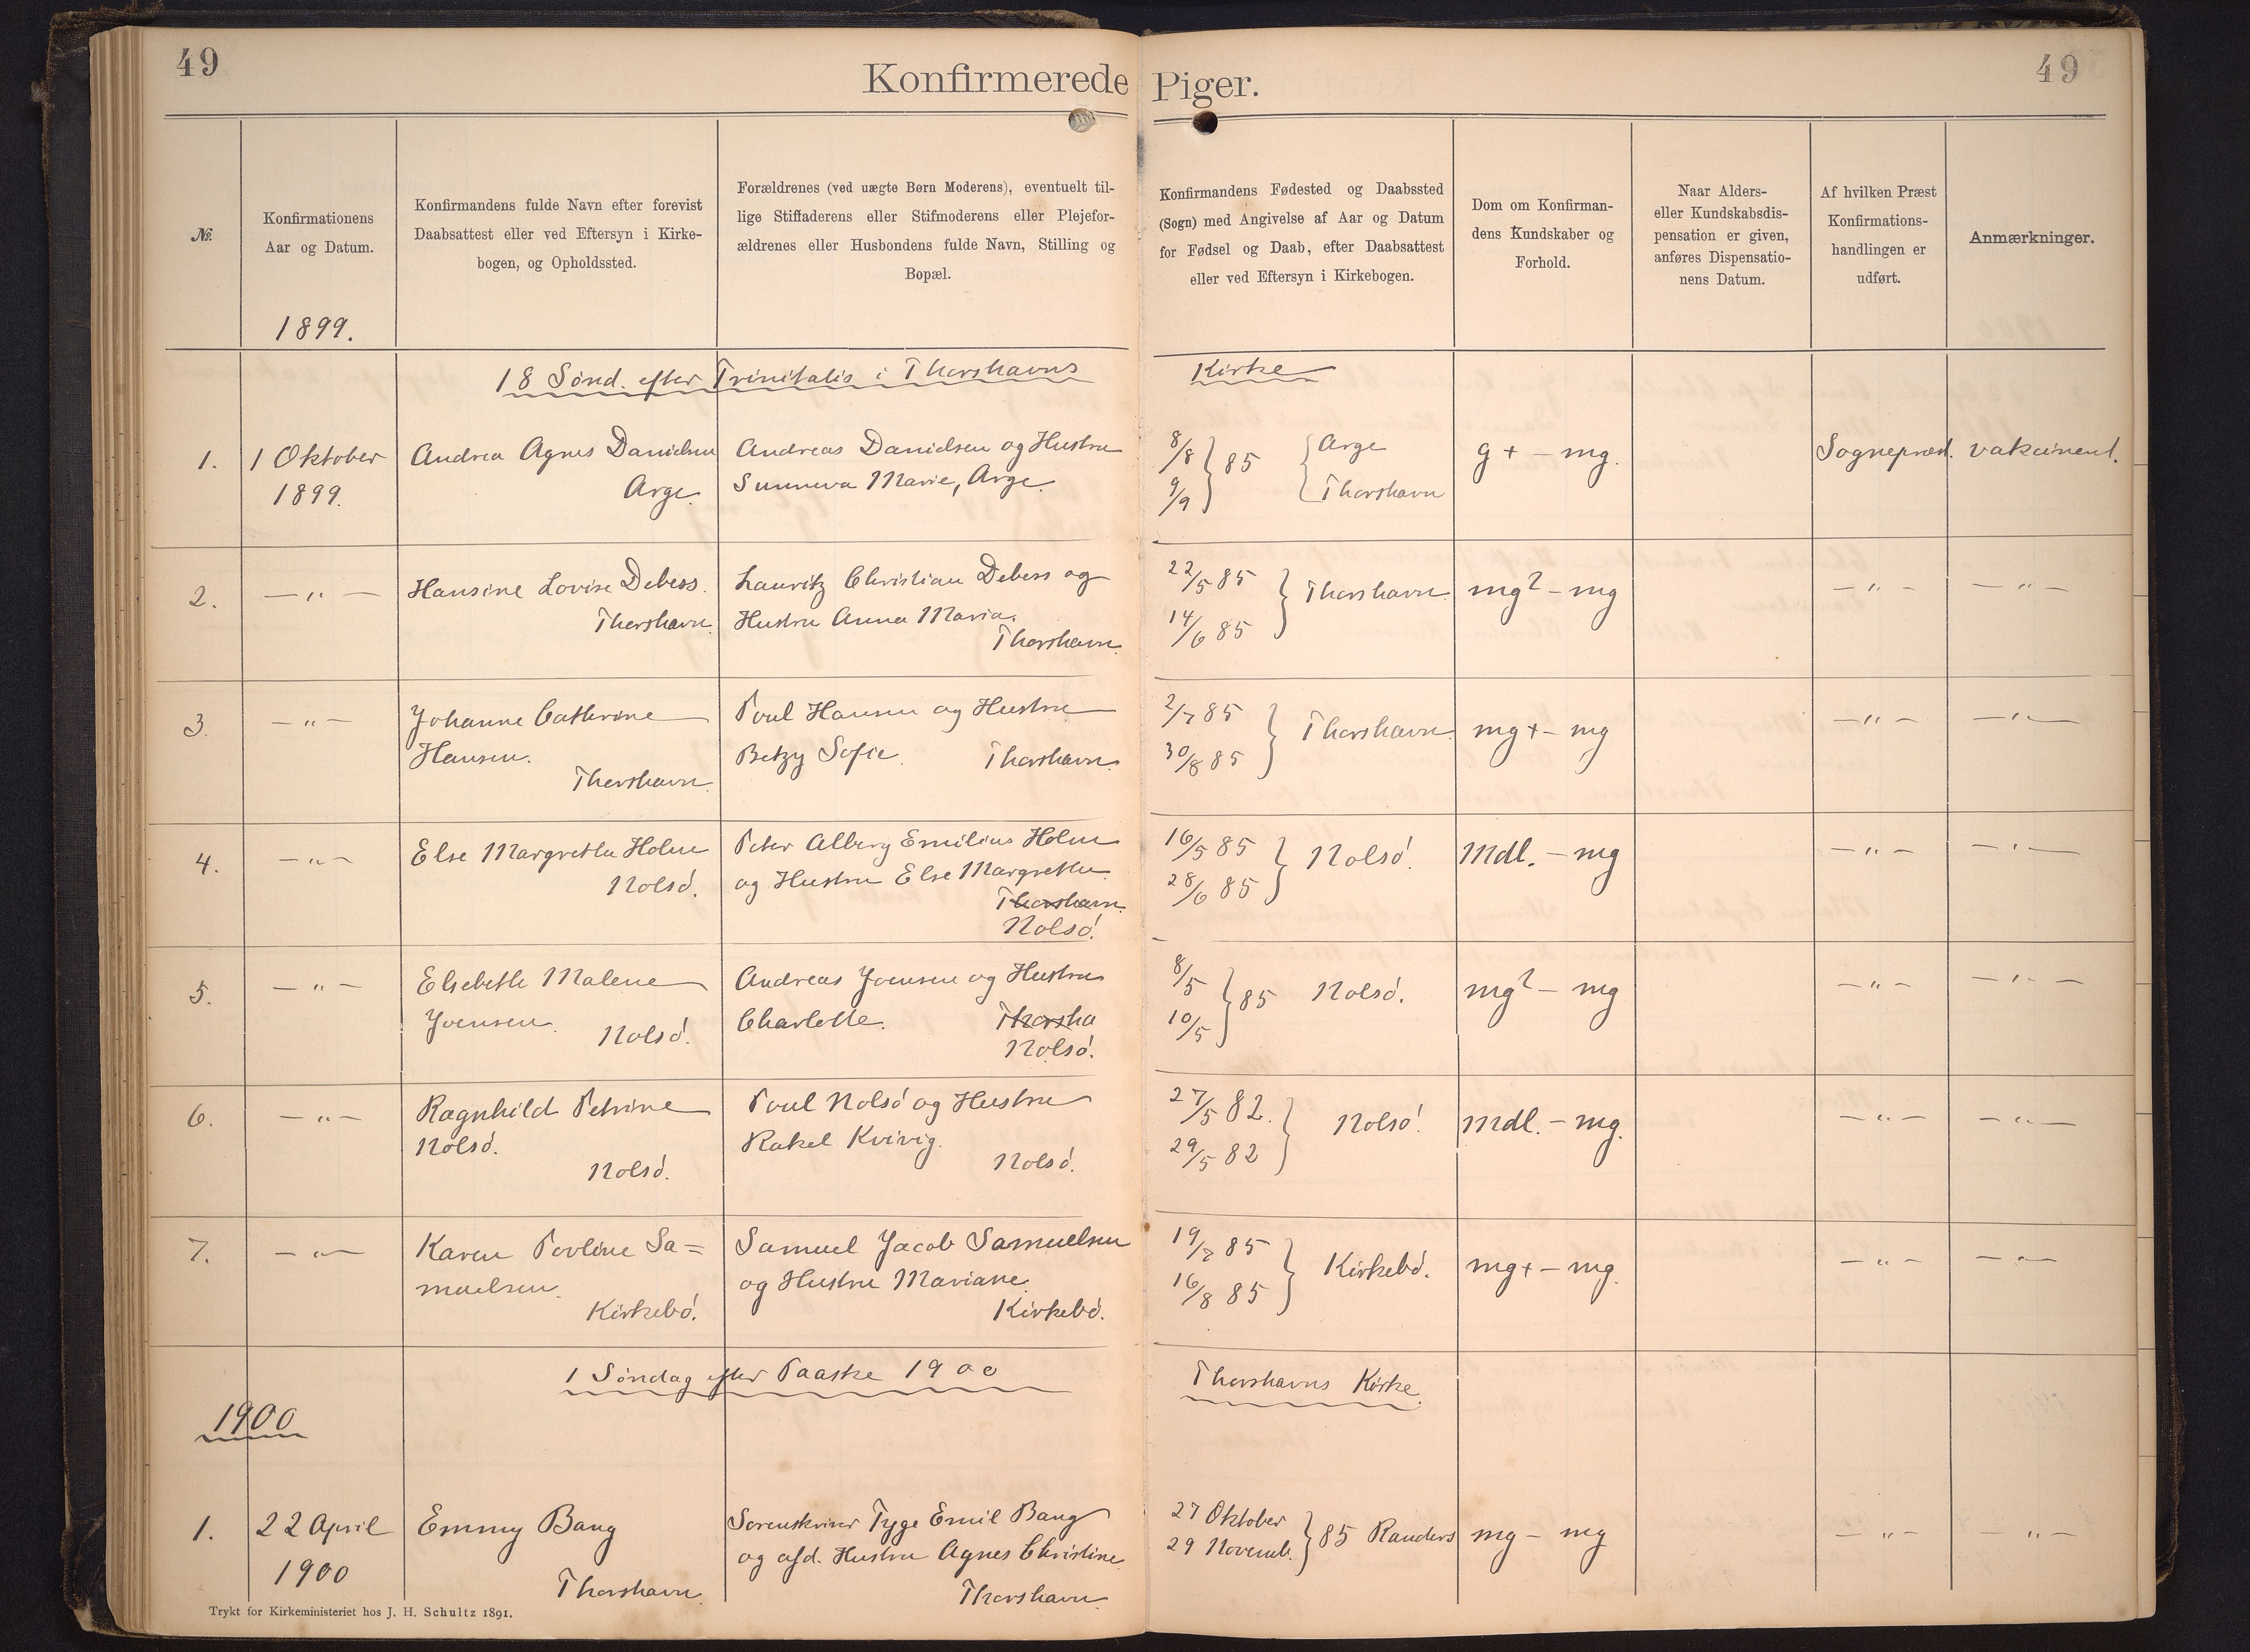 49
49
Konfirmerede Piger.
№.
Konfirmationens
Aar og Datum.
1899.
Konfirmandens fulde Navn efter forevist
Daabsattest eller ved Eftersyn i Kirke-
bogen, og Opholdssted.
Forældrenes (ved uægte Børn Moderens), eventuelt til-
lige Stiffaderens eller Stifmoderens eller Plejefor-
ældrenes eller Husbondens fulde Navn, Stilling og
Bopæl.
Konfirmandens Fødested og Daabssted
(Sogn) med Angivelse af Aar og Datum
for Fødsel og Daab, efter Daabsattest
eller ved Eftersyn i Kirkebogen.
Dom om Konfirman-
dens Kundskaber og
Forhold.
Naar Alders-
eller Kundskabsdis-
pensation er given,
anføres Dispensatio-
nens Datum.
Af hvilken Præst
Konfirmations-
handlingen er
udført.
Anmærkninger.
18 Sönd. efter Trinitatis i Thorshavns Kirke
1.
1 Oktober
1899.
Andrea Agnes Danielsen
Arge.
Andreas Danielsen og Hustru
Sunneva Marie, Arge.
8/8
9/9 } 85
{ Arge
Thorshavn
g+ – mg.
Sognepræst.
vakcineret.
2.
— " —
Hansine Lovise Debess.
Thorshavn.
Lauritz Christian Debess og
Hustru Anna Maria.
Thorshavn.
22/5 85
14/6 85 } Thorshavn.
mg? – mg
— " —
— " —
3.
— " —
Johanne Cathrine
Hansen.
Thorshavn.
Poul Hansen og Hustru
Betzy Sofie. Thorshavn.
2/7 85
30/8 85 } Thorshavn.
mg+ – mg
— " —
— " —
4.
— " —
Else Margrethe Holm
Nolsó.
Peter Alberg Emilius Holm
og Hustru Else Margrethe
Thorshavn.
Nolsó.
16/5 85
28/6 85 } Nolsó.
Mdl. – mg
— " —
— " —
5.
— " —
Elsebeth Malene
Joensen. Nolsó.
Andreas Joensen og Hustru
Charlotte. Thorsha
Nolsó.
8/5
10/5 } 85 Nolsó.
mg? – mg
— " —
— " —
6.
— " —
Ragnhild Petrine
Nolsó.
Nolsó.
Poul Nolsó og Hustru
Rakel Kvivig.
Nolsó.
27/5 82.
29/5 82 } Nolsó.
Mdl. – mg.
— " —
— " —
7.
— " —
Karen Povline Sa=
muelsen.
Kirkebó.
Samuel Jacob Samuelsen
og Hustru Mariane.
Kirkebó.
19/7 85
16/8 85 } Kirkebó.
mg+ – mg.
— " —
— " —
1 Söndag efter Paaske 1900 Thorshavns Kirke.
1900
1.
22 April
1900
Emmy Bang
Thorshavn.
Sorenskriver Tyge Emil Bang
og afd. Hustru Agnes Christine
Thorshavn.
27 Oktober
29 Novemb. } 85 Randers
mg – mg
— " —
— " —
Trykt for Kirkeministeriet hos J. H. Schultz 1891.